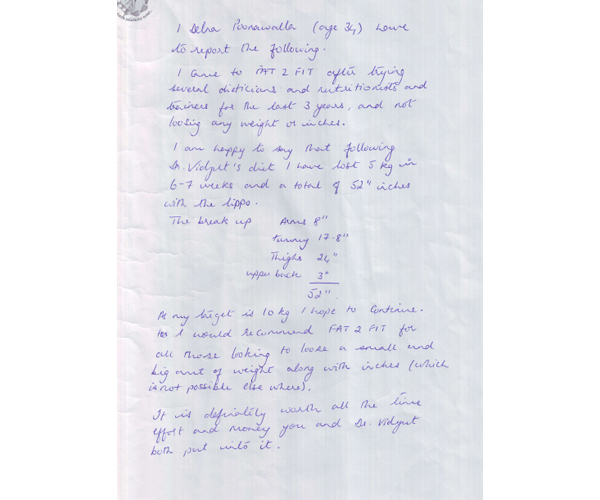 I Delna Poonawalla (age 34) have
to report the following.
I came to FAT 2 FIT after trying
several dieticians and nutritionists and
trainers for the last 3 years, and not
loosing any weight or inches.
I am happy to say that following
Dr. Vidyut's diet I have lost 5 kg in
6-7 weeks and a total of 52" inches
with the lippo.
The break up Arms 8"
tummy 17.8"
Thighs 24"
upper back 3"
52".
As my target is 10 kg I hope to continue.
I would recommend FAT 2 FIT for
all those looking to loose a small and
big amt of weight along with inches (which
is not possible else where).
It is definitely worth all the time
effort and money you and Dr. Vidyut
both put into it.